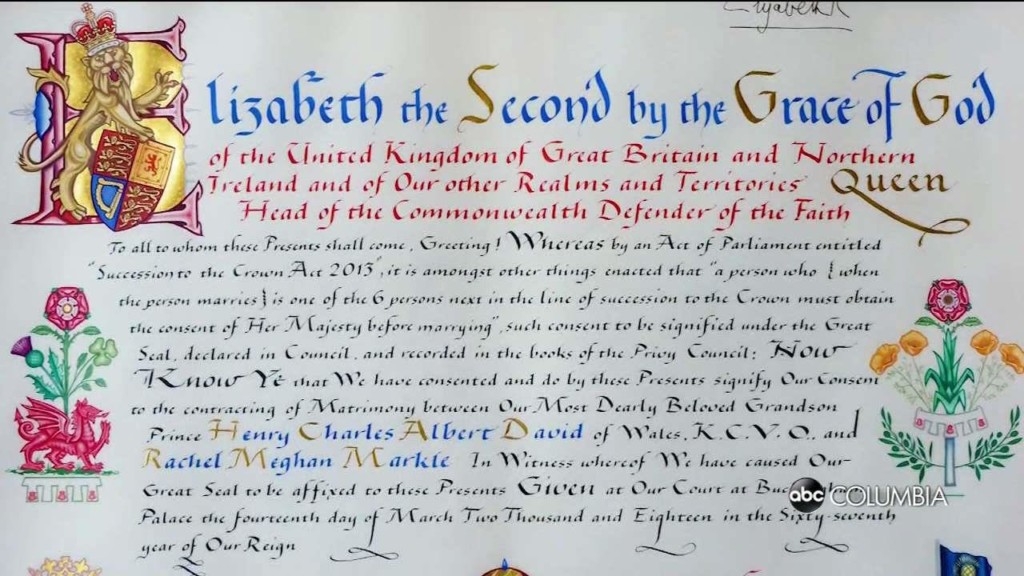 Elizabeth R
Elizabeth the Second by the Grace of God
of the United Kingdom of Great Britain and Northern
Ireland and of Our other Realms and Territories Queen
Head of the Commonwealth Defender of the Faith
To all to whom these Presents shall come, Greeting! Whereas by an Act of Parliament entitled
"Succession to the Crown Act 2013", it is amongst other things enacted that "a person who {when
the person marries} is one of the 6 persons next in the line of succession to the Crown must obtain
the consent of Her Majesty before marrying", such consent to be signified under the Great
Seal, declared in Council, and recorded in the books of the Privy Council: Now
Know Ye that We have consented and do by these Presents signify Our Consent
to the contracting of Matrimony between Our Most Dearly Beloved Grandson
Prince Henry Charles Albert David of Wales, K.C.V.O., and
Rachel Meghan Markle In Witness whereof We have caused Our
Great Seal to be affixed to these Presents Given at Our Court at
abc COLUMBIA
Palace the fourteenth day of March Two Thousand and Eighteen in the Sixty-seventh
year of Our Reign